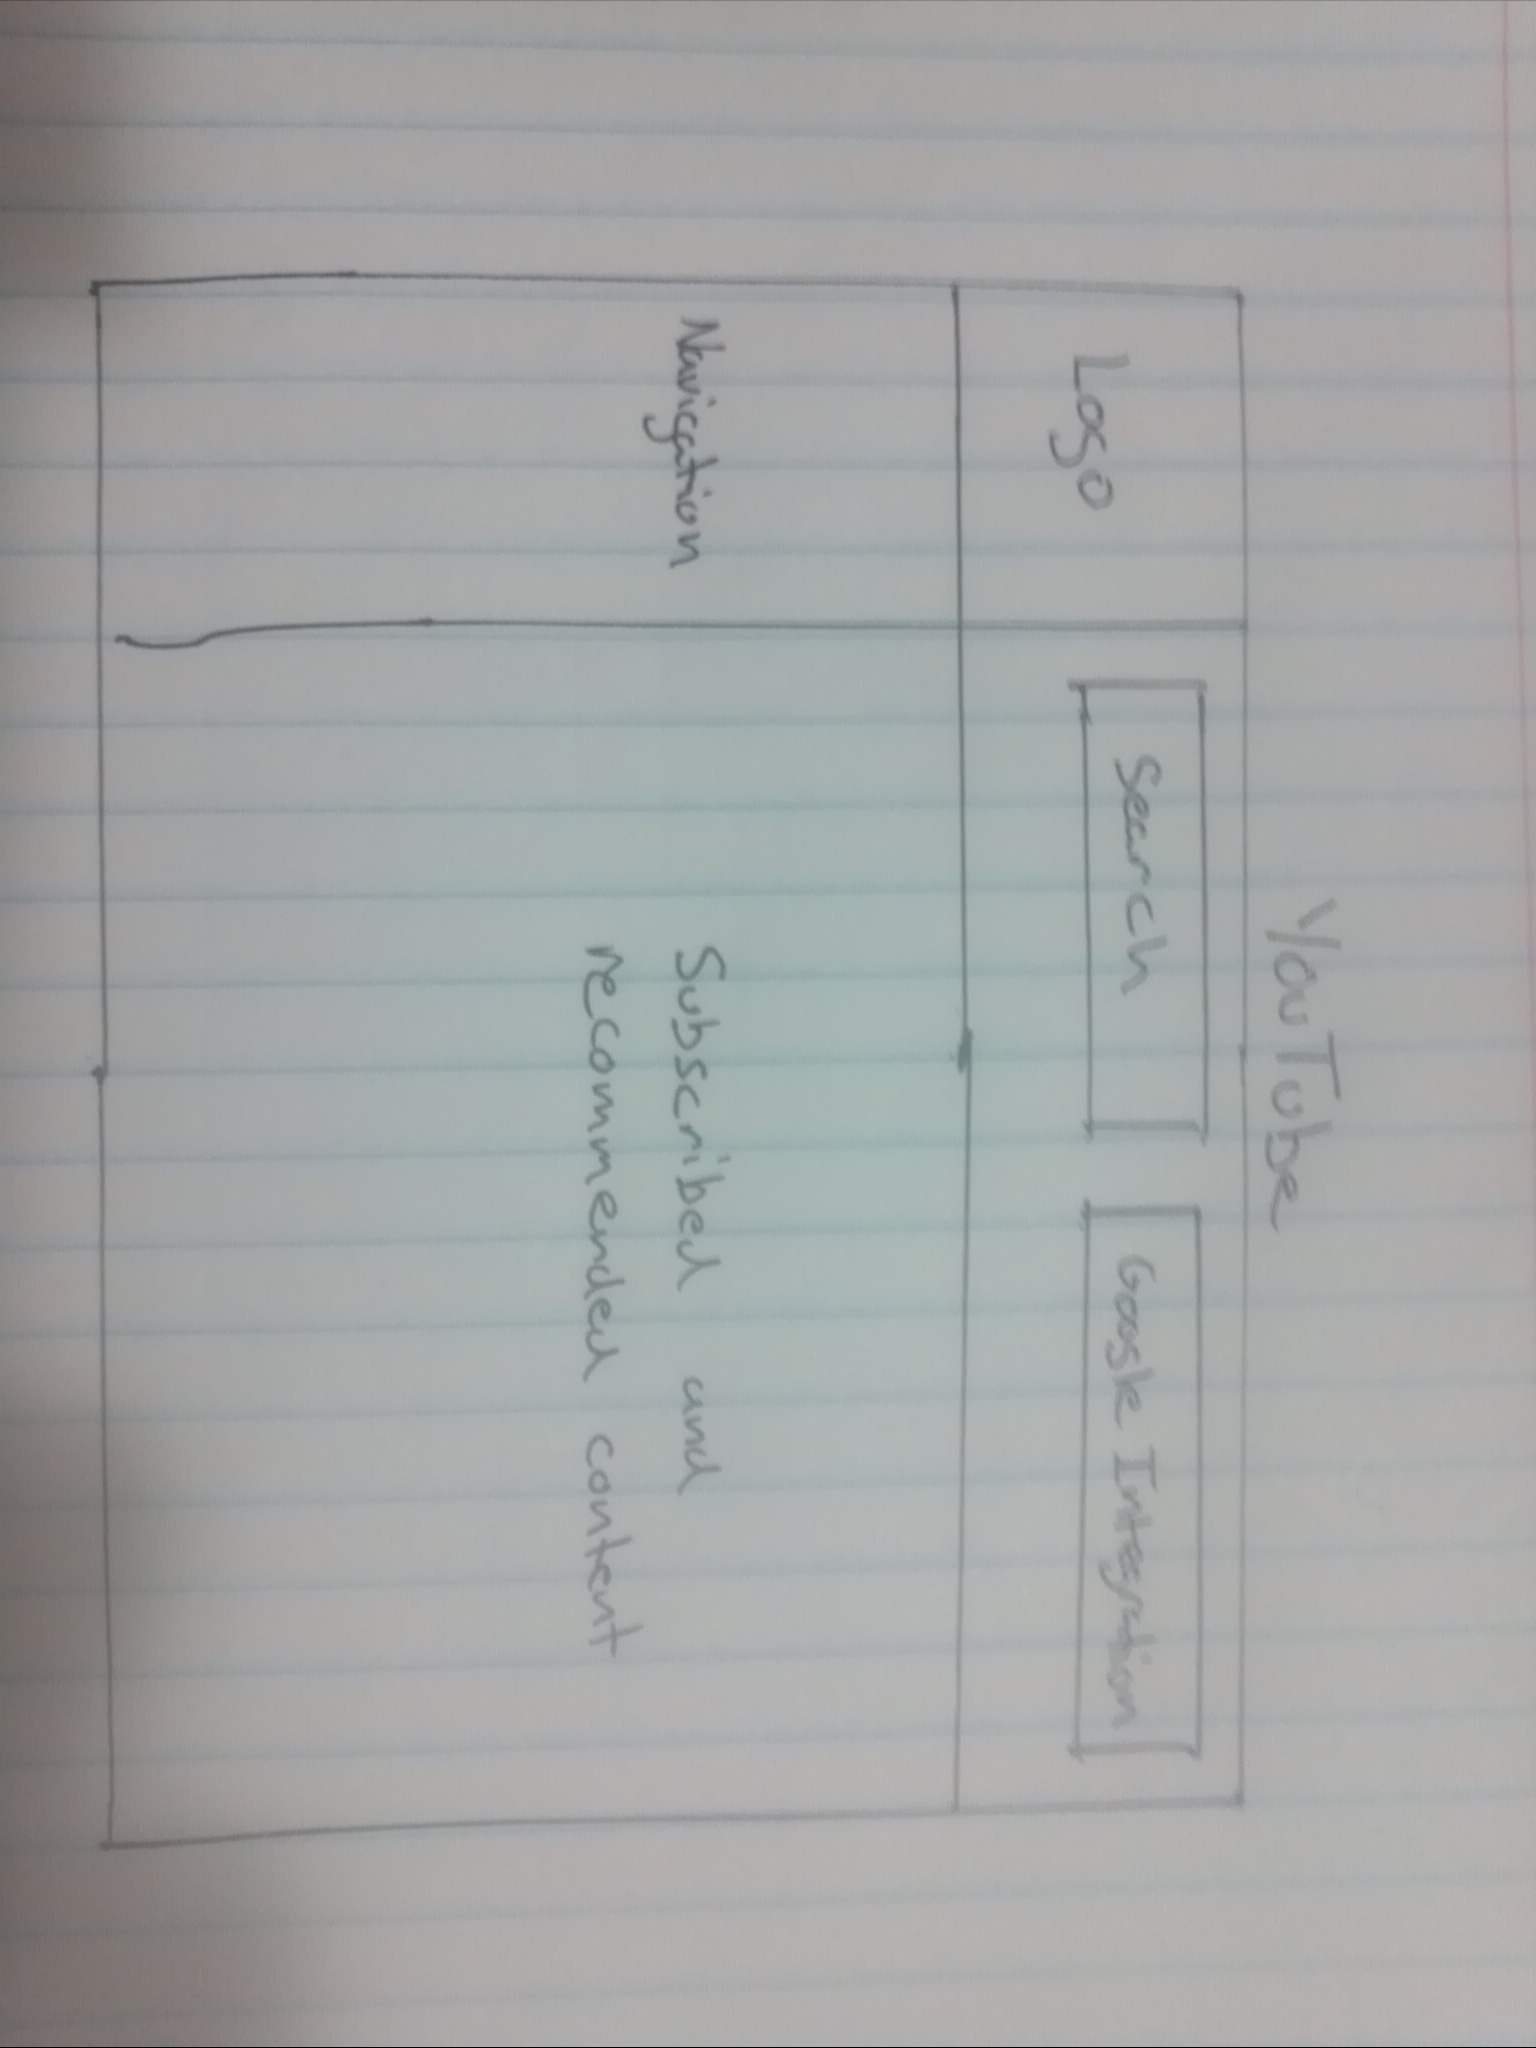 YouTube
Logo
Search
Google Integration
Navigation
Subscribed and
recommended content